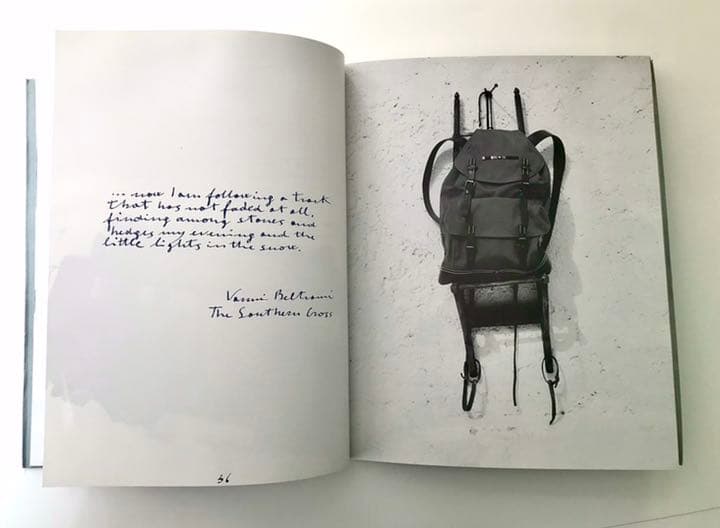 ... now I am following a track
that has not faded at all,
finding among stones and
hedges my evening and the
little lights in the snow.
Vanni Beltrami
The Southern Cross
56